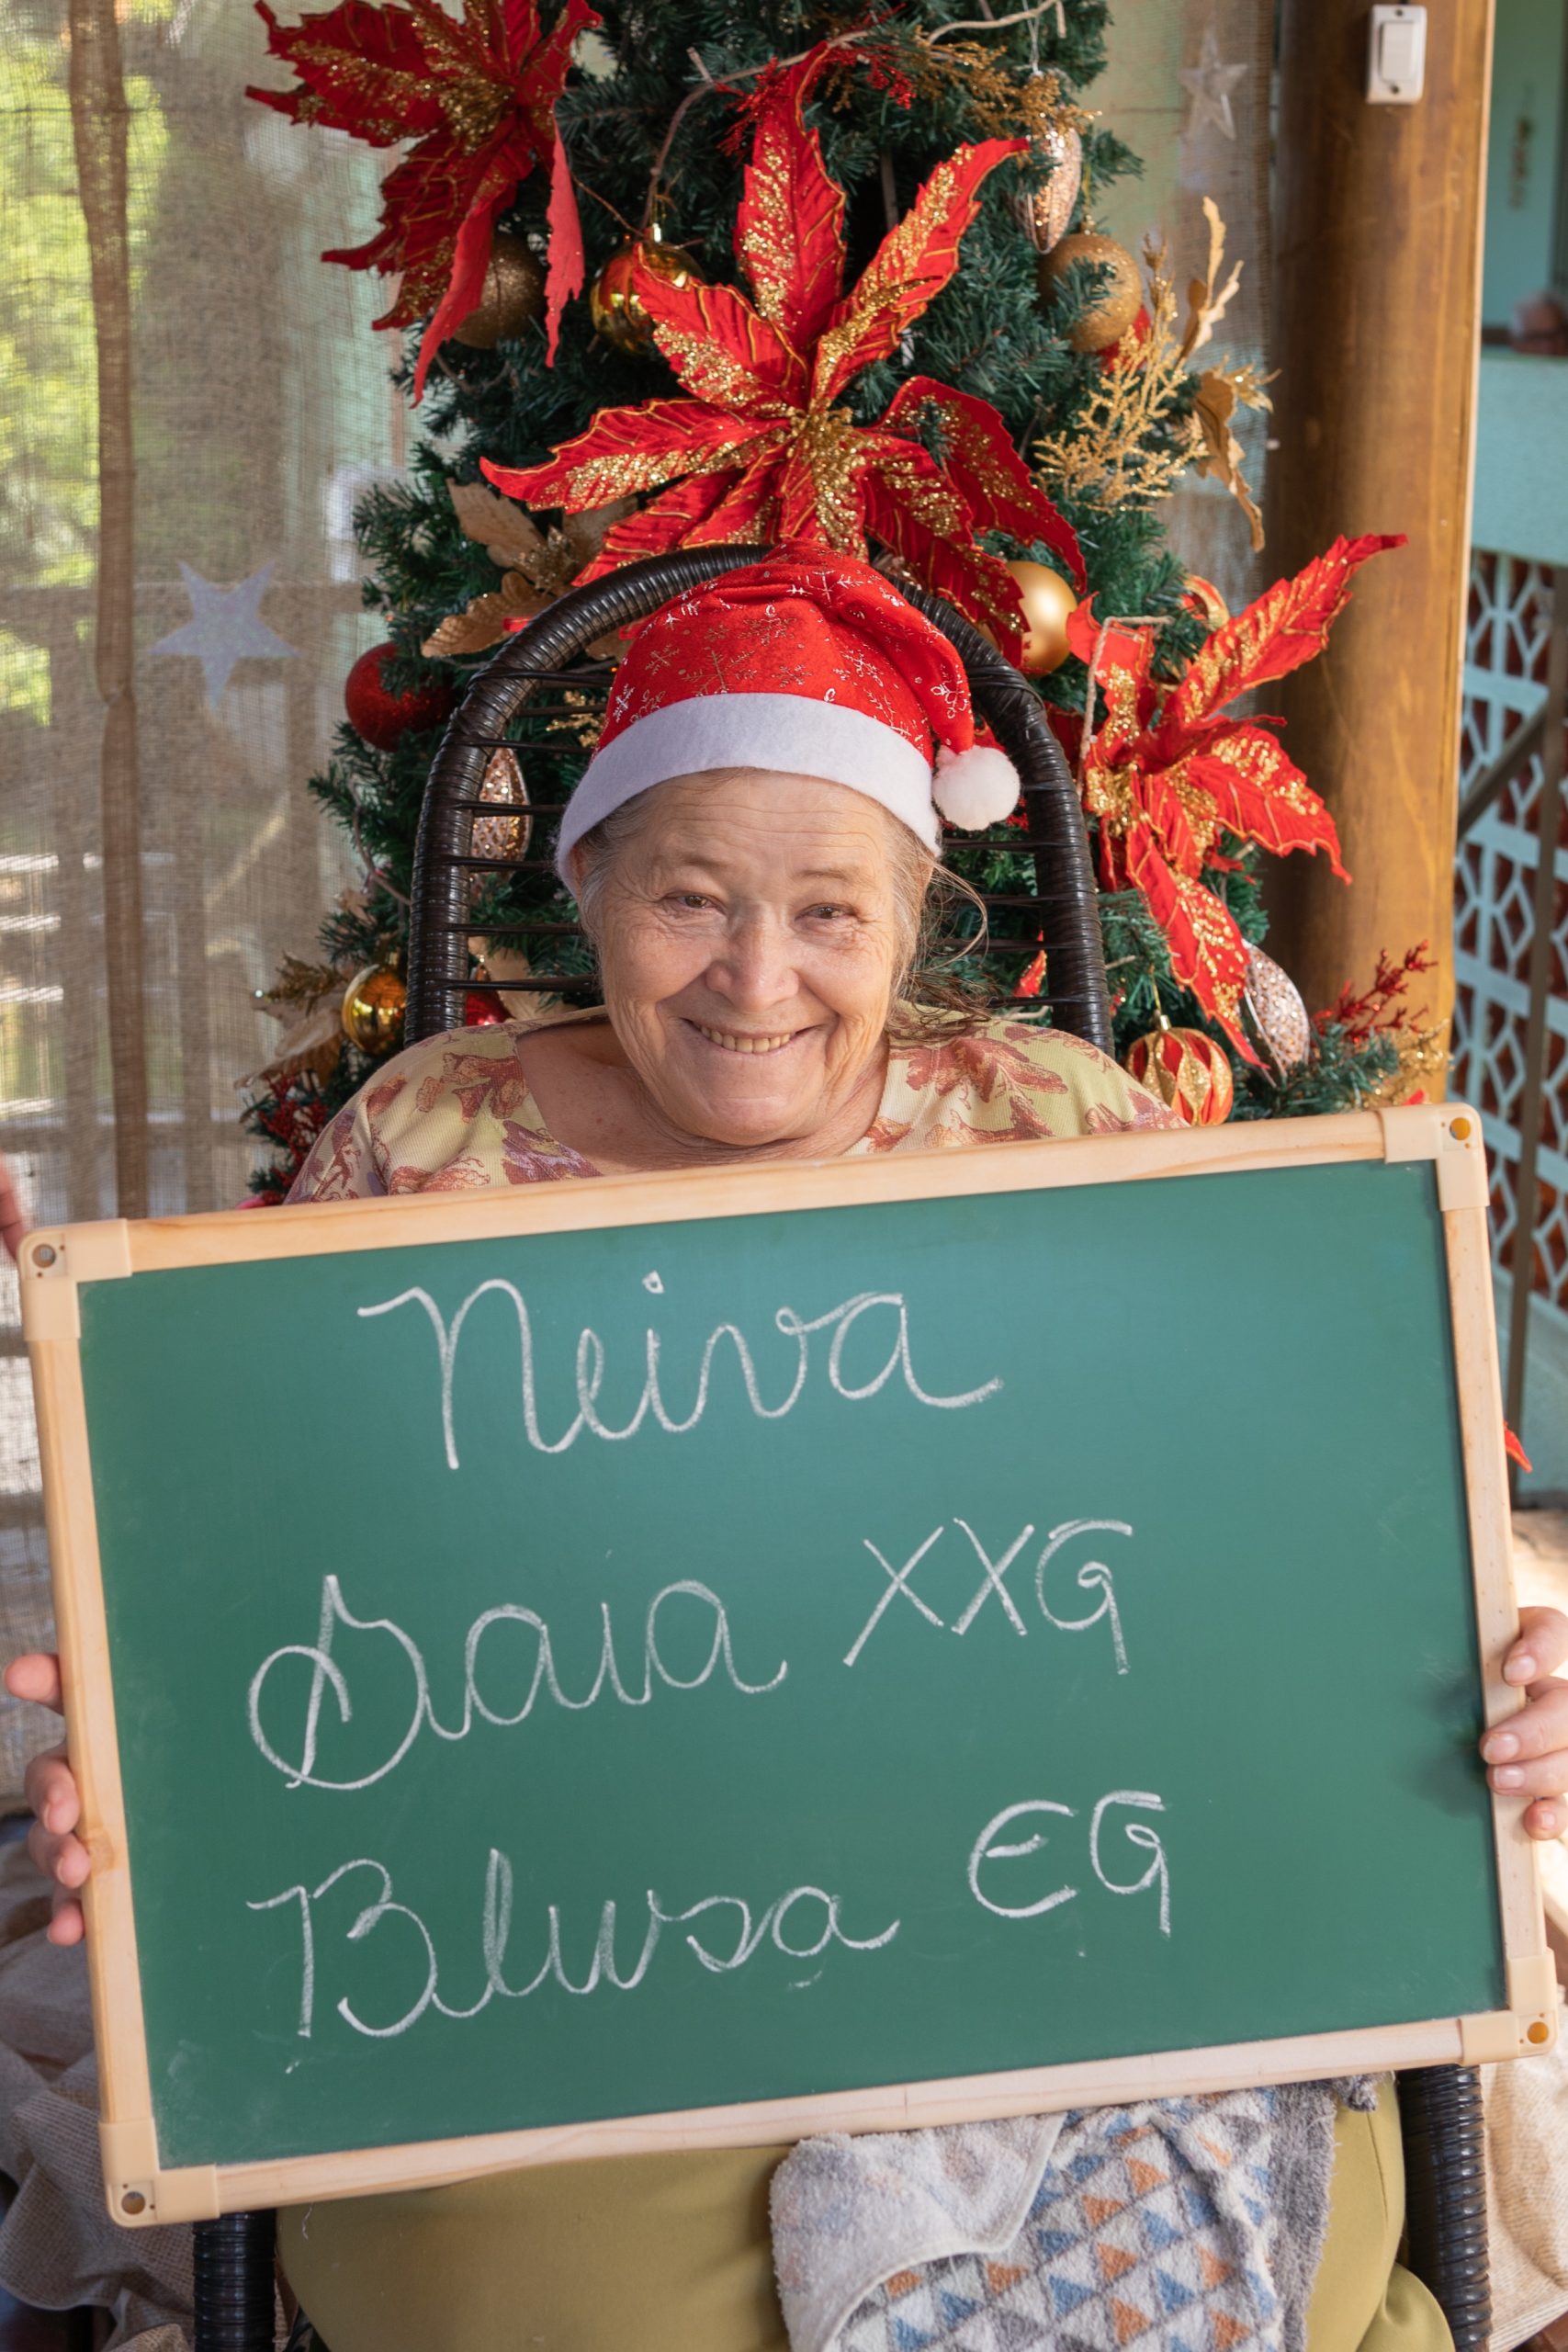 Neiva
Saia XXG
Blusa EG